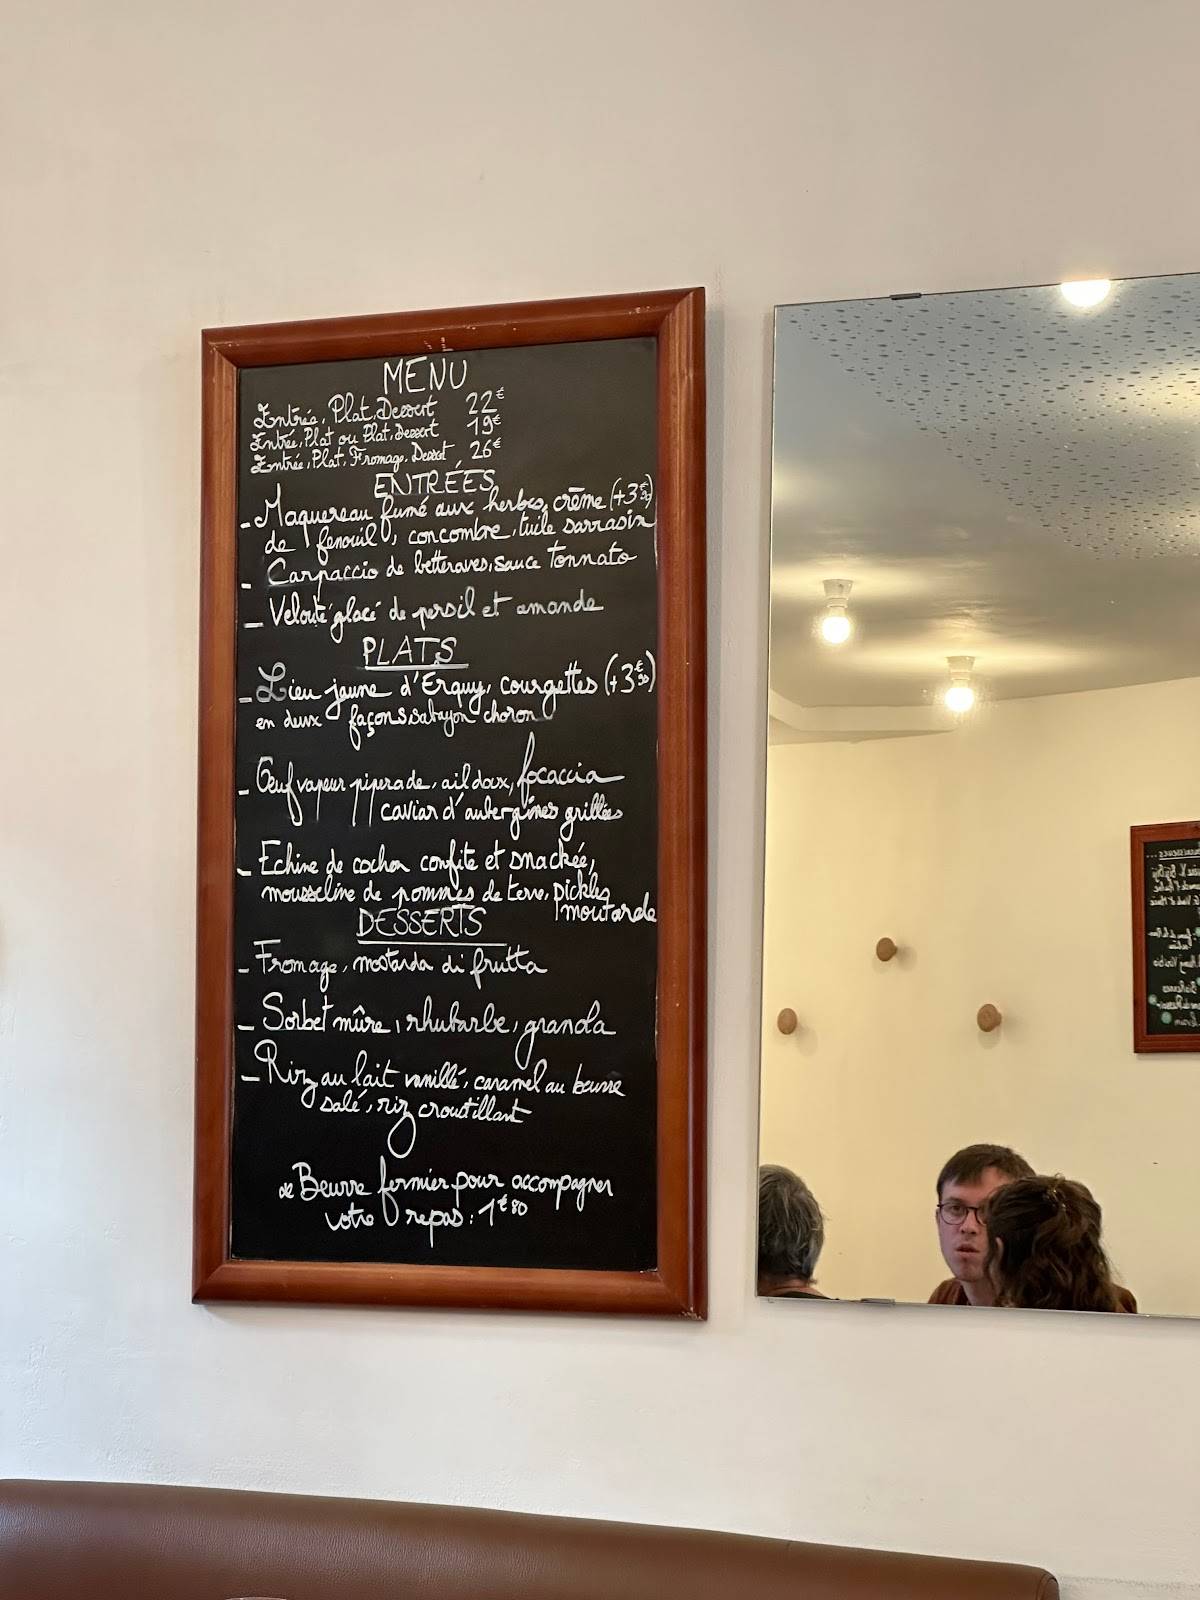 MENU
Entrée, Plat, Dessert 22€
Entrée, Plat ou Plat, Dessert 19€
Entrée, Plat, Fromage, Dessert 26€
ENTRÉES
- Maquereau fumé aux herbes, crème (+3€50)
de fenouil, concombre, tuile sarrasin
- Carpaccio de betteraves, sauce tonnato
- Velouté glacé de persil et amande
PLATS
- Lieu jaune d'Erquy, courgettes (+3€50)
en deux façons, sabayon choron
- Œuf vapeur piperade, ail doux, focaccia
caviar d'aubergines grillées
- Echine de cochon confite et snackée,
mousseline de pommes de terre, pickles
moutarde
DESSERTS
- Fromage, mostarda di frutta
- Sorbet mûre, rhubarbe, granola
- Riz au lait vanillé, caramel au beurre
salé, riz croustillant
de Beurre fermier pour accompagner
votre repas : 1€80